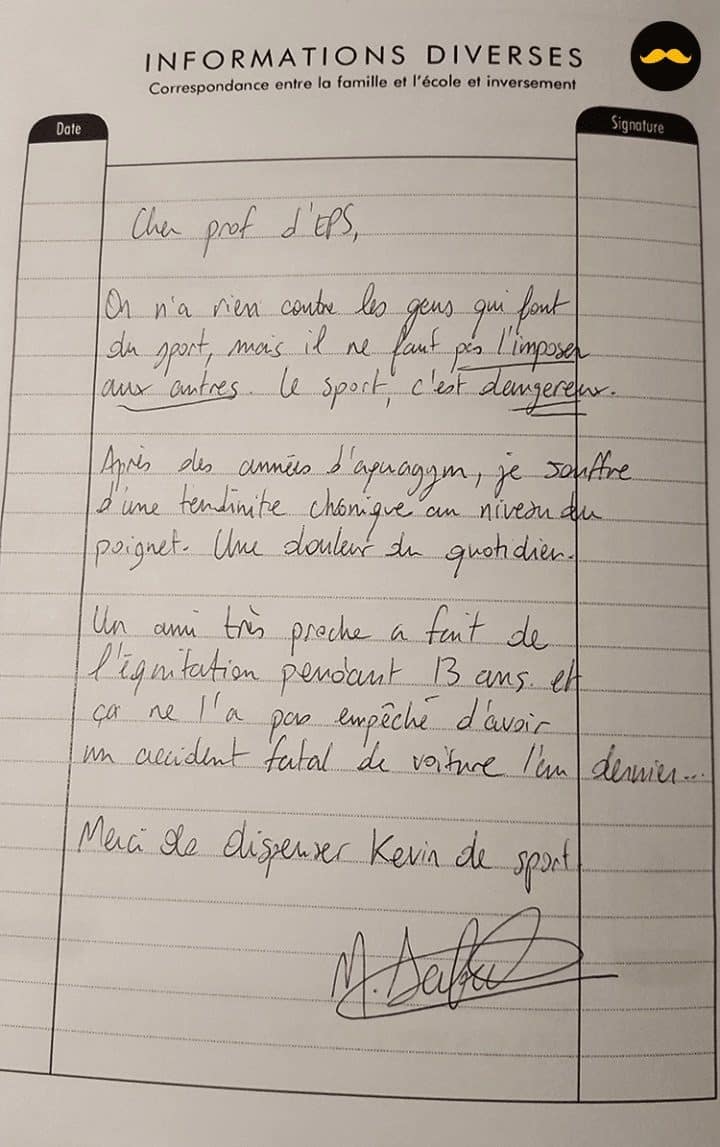 INFORMATIONS DIVERSES
Correspondance entre la famille et l'école et inversement
Date
Signature
Cher prof d'EPS,
On n'a rien contre les gens qui font
du sport, mais il ne faut pas l'imposer
aux autres. Le sport, c'est dangereux.
Après des années d'aquagym, je souffre
d'une tendinite chronique au niveau du
poignet. Une douleur du quotidien.
Un ami très proche a fait de
l'équitation pendant 13 ans. et
ça ne l'a pas empêché d'avoir
un accident fatal de voiture l'an dernier...
Merci de dispenser Kevin de sport
M.